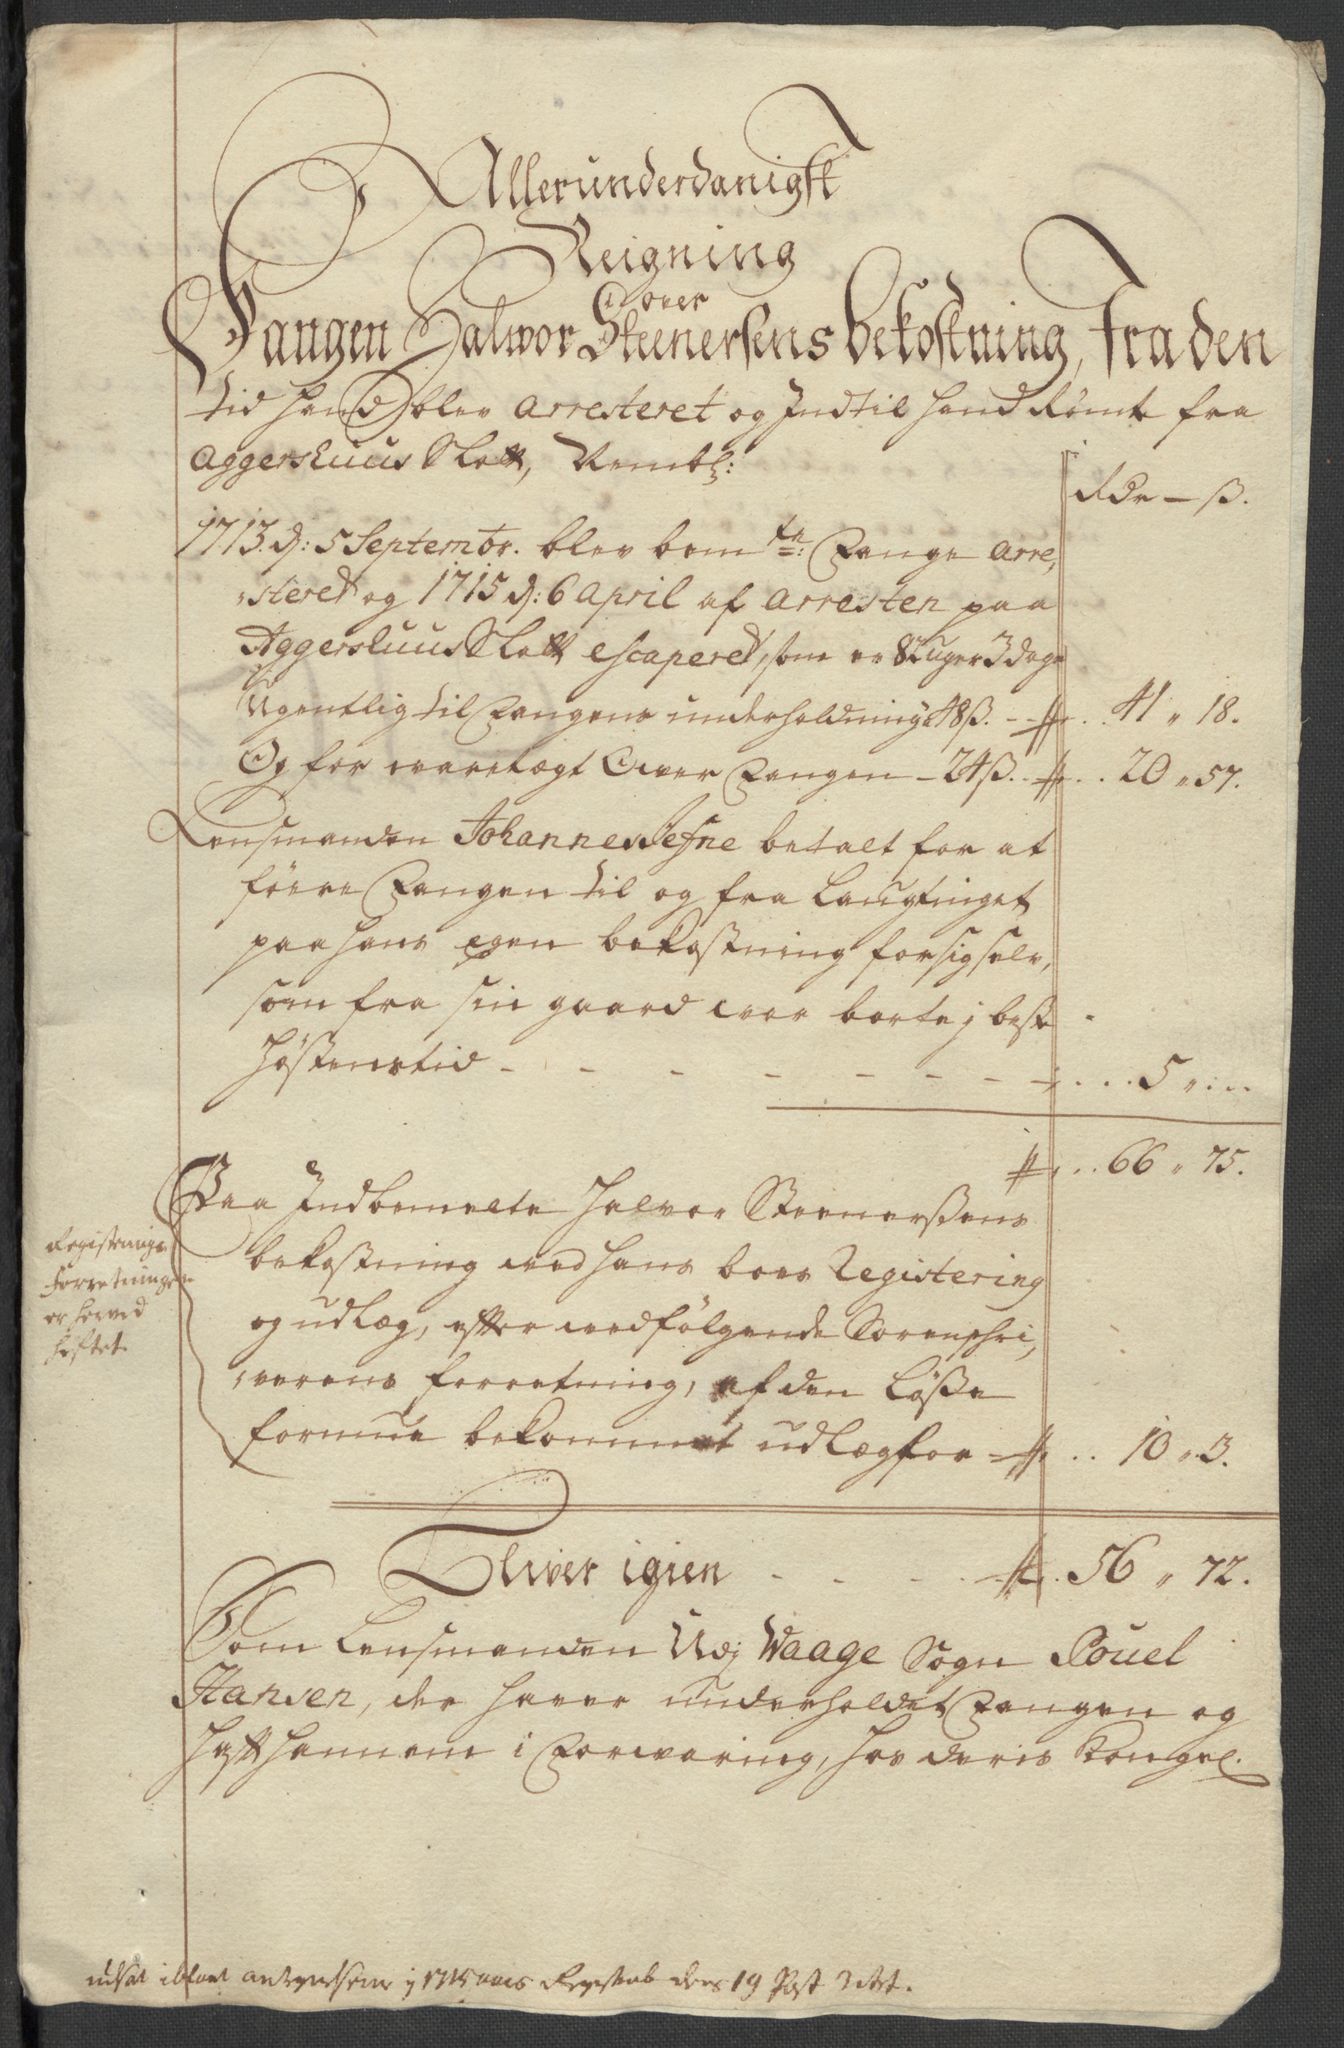 Allerunderdanigst
Reigning
over
Fangen Halwor Steenersens bekostning, fra den
tid hand blev arresteret og Indtil hand Rømte fra
Aggershuus Slott, Nembl:
Rdr — ß.
1713. d: 5 Septembr. blev bemte: Fange arre,
,steret og 1715 d: 6 April af arresten paa
Aggershuus Slott escaperet, som er 82 uger 3 dage
Ugentlig til Fangens underholdning 48 ß. - 41 „ 18.
Og for waretægt Over Fangen - 24 ß. 20 „ 57.
Lensmanden Johannes betalt for at
føre Fangen til og fra Laugtinget
paa hans egen bekostning for sig selv,
som fra sin gaard war borte j beste
Høstens tid - - - - - - - 5 „ ...
66 „ 75.
Paa Indbemelte Halvor Steenerßens
bekostning ved hans boes Registering
og udlæg, efter medfølgende Sorenschri,
,verens forretning, af den Løsse
formue bekommet udlæg for 10 „ 3.
Registerings
Forretningen
er herved
heftet
Bliver igien - - - - 56 „ 72.
Som Lensmanden Udj Waage Sogn Pouel
Hansen, der haver underholdet Fangen og
hafft hannem i Forwaring, hos deris Kongel.
udsat iblant antegnelserne j 1715 aars Regnskab dens 19 Post